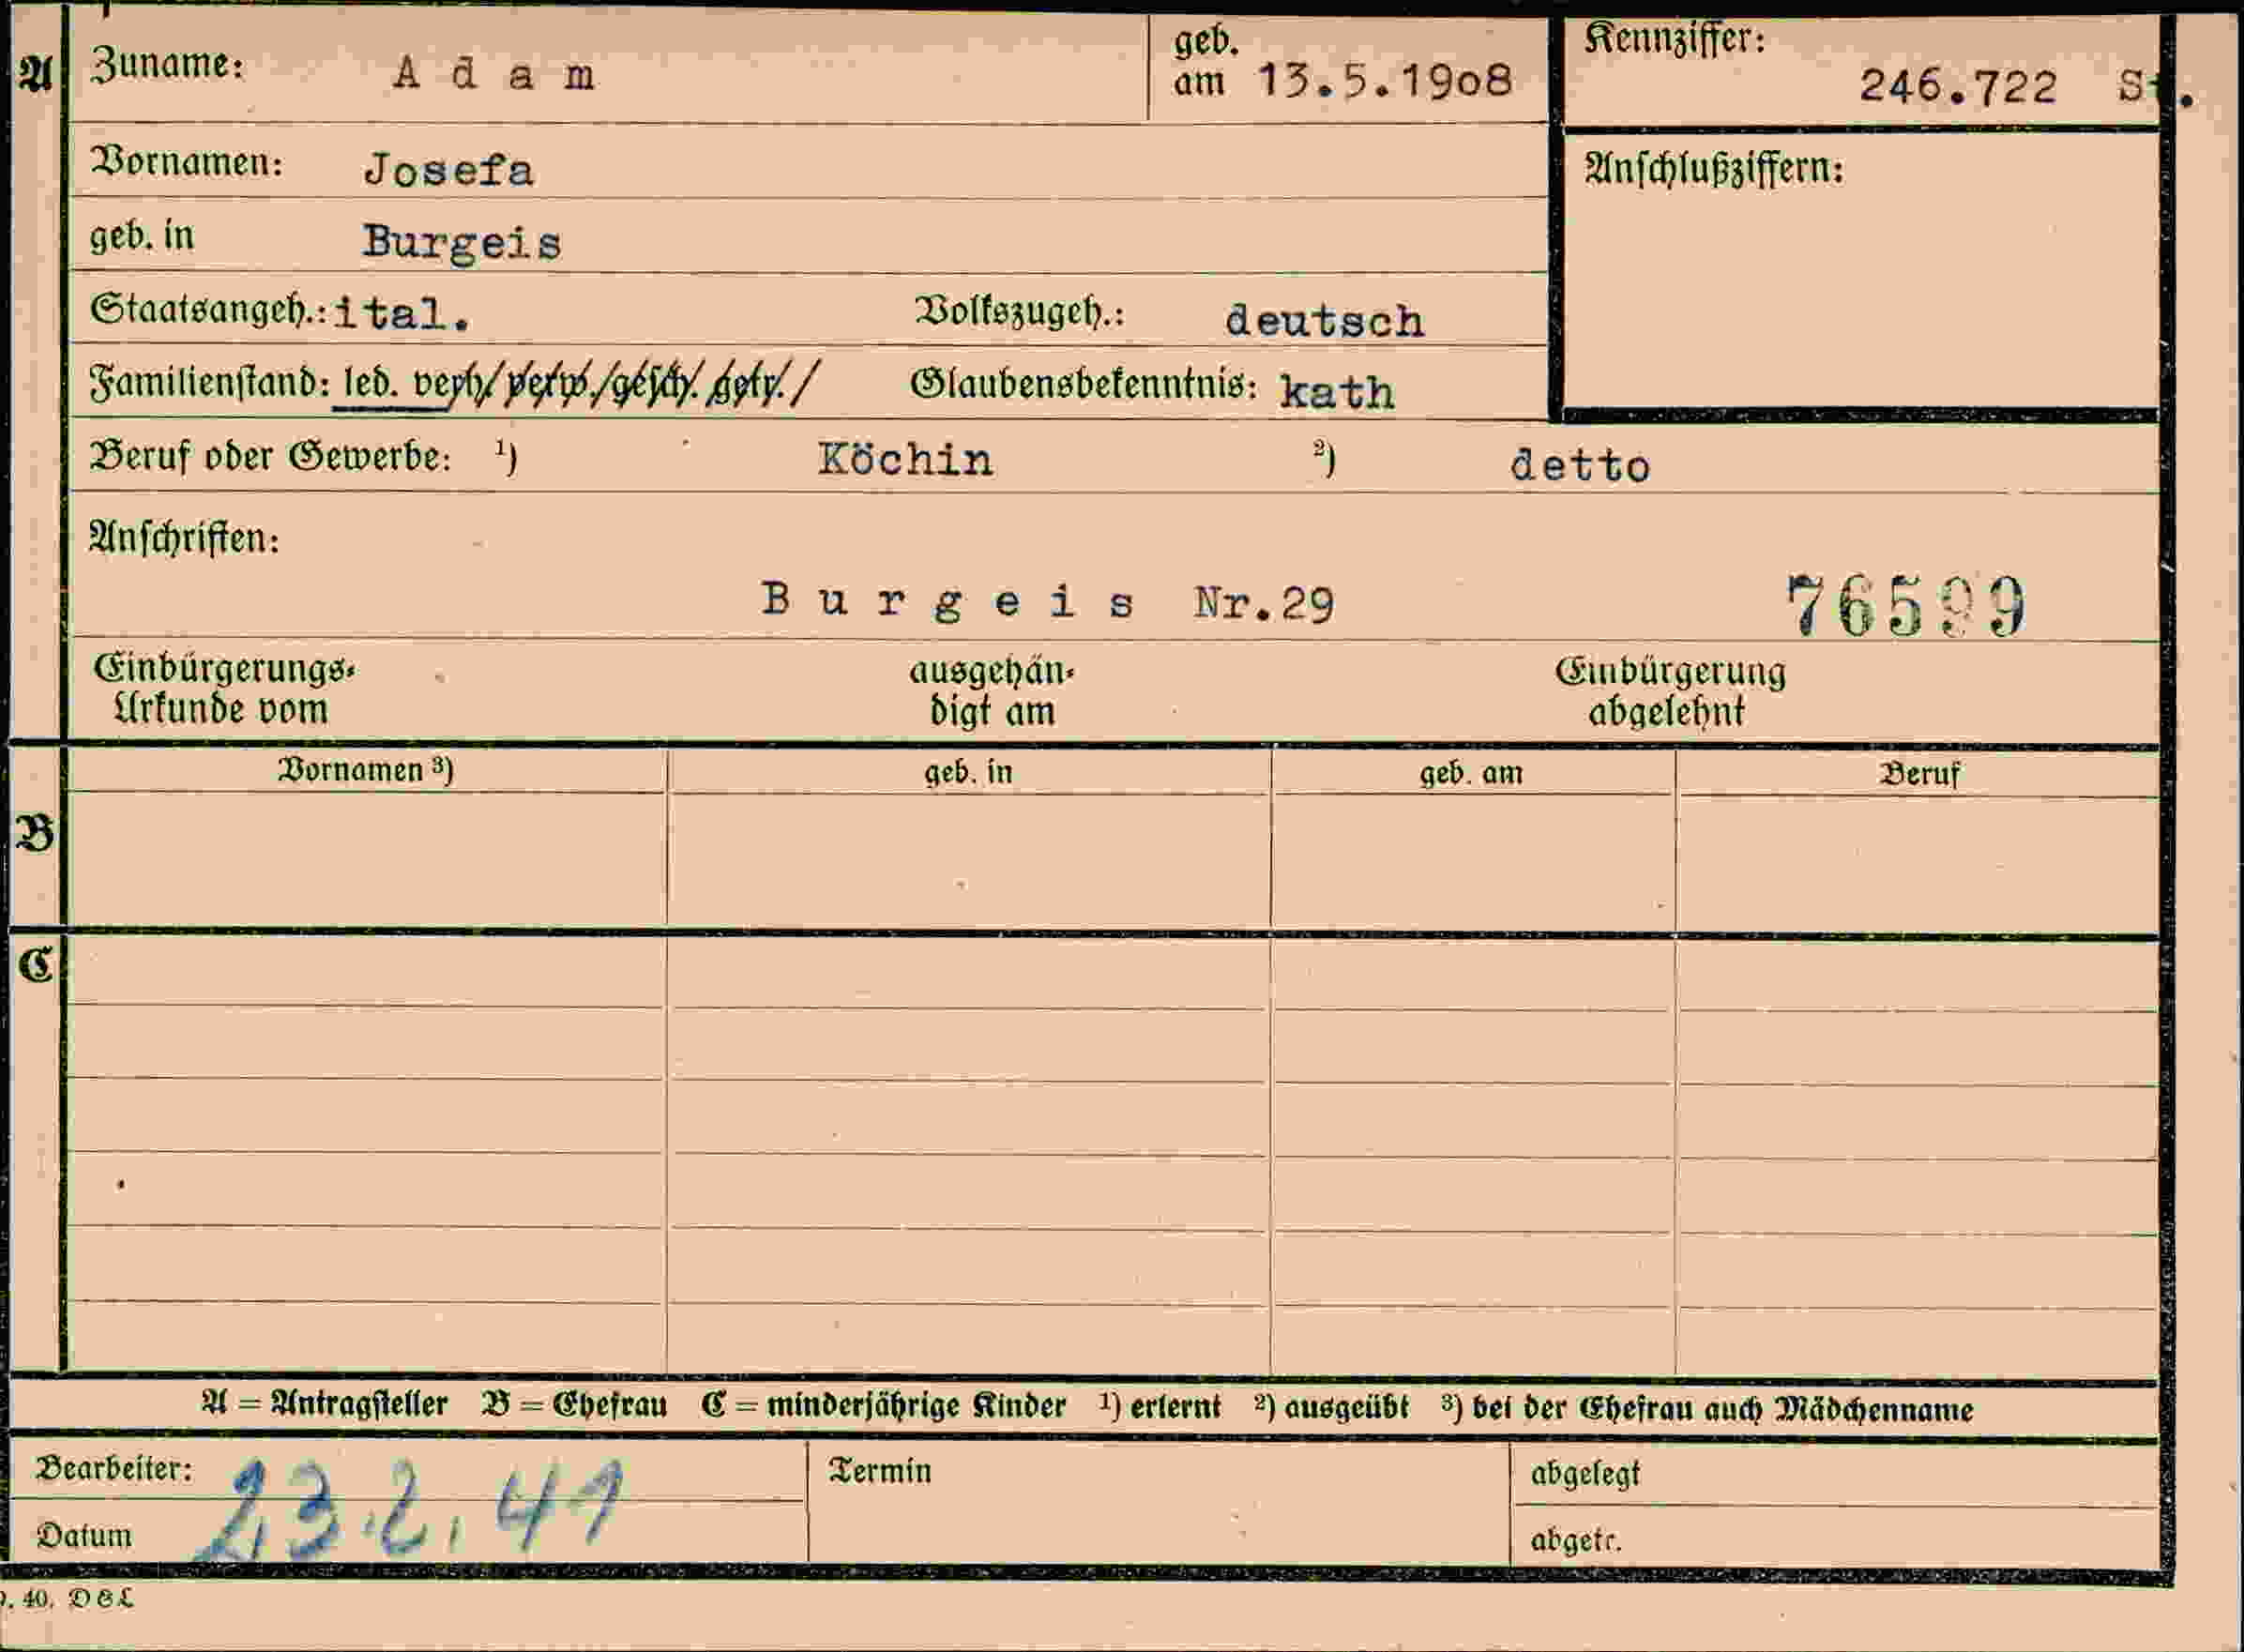 A Zuname: A d a m geb. am 13.5.19o8 Kennziffer: 246.722 St.
Vornamen: Josefa Anschlußziffern:
geb. in Burgeis
Staatsangeh.: ital. Volkszugeh.: deutsch
Familienstand: led. verh. verw. gesch. getr. Glaubensbekenntnis: kath
Beruf oder Gewerbe: ¹) Köchin ²) detto
Anschriften:
B u r g e i s Nr.29 76599
Einbürgerungs- ausgehän- Einbürgerung
Urkunde vom digt am abgelehnt
Vornamen ³) geb. in geb. am Beruf
B
C
A = Antragsteller B = Ehefrau C = minderjährige Kinder ¹) erlernt ²) ausgeübt ³) bei der Ehefrau auch Mädchenname
Bearbeiter: Termin abgelegt
Datum 23.2.41 abgetr.
40. D&L